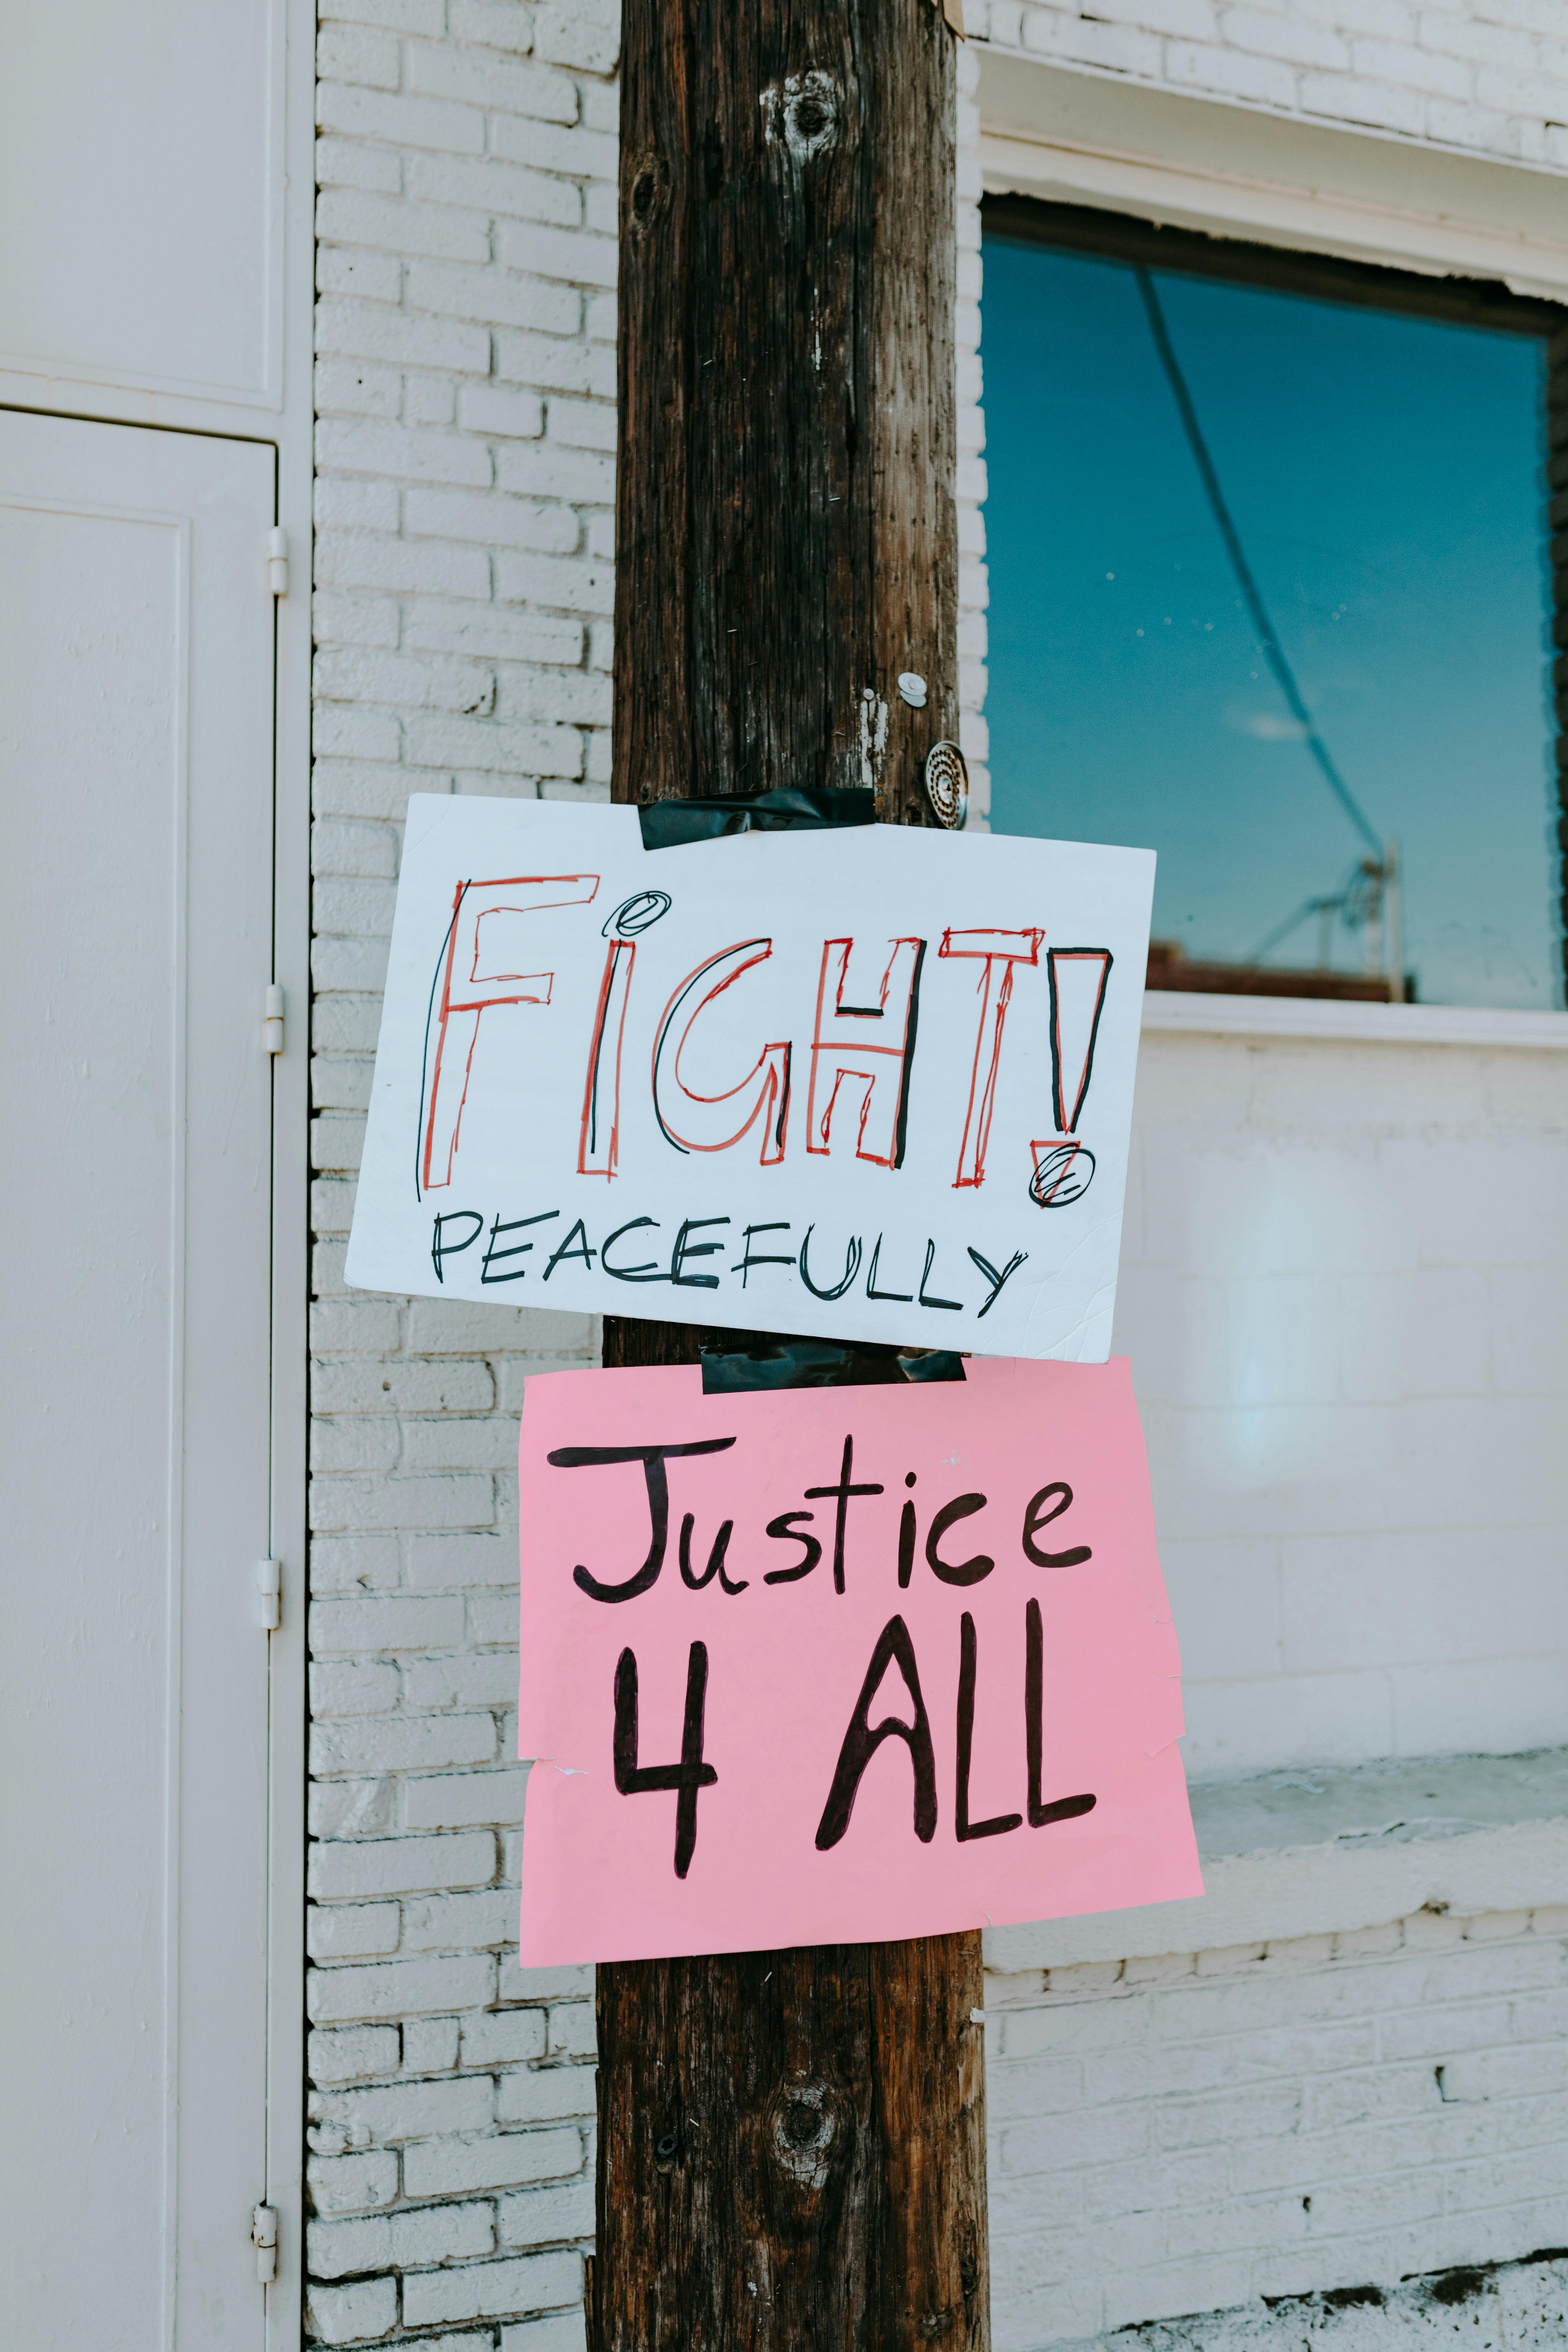 FiGHT!
PEACEFULLY
Justice
4 ALL